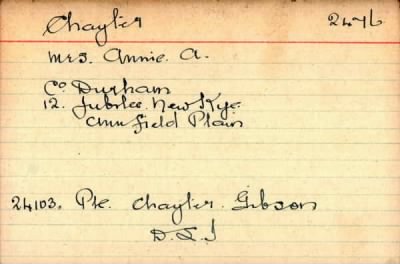 Chaytor 2476
Mrs. Annie. A.
Co Durham
12. Jubilee. New Kyo.
Annfield Plain
24103. Pte. Chaytor. Gibson
D.L.I